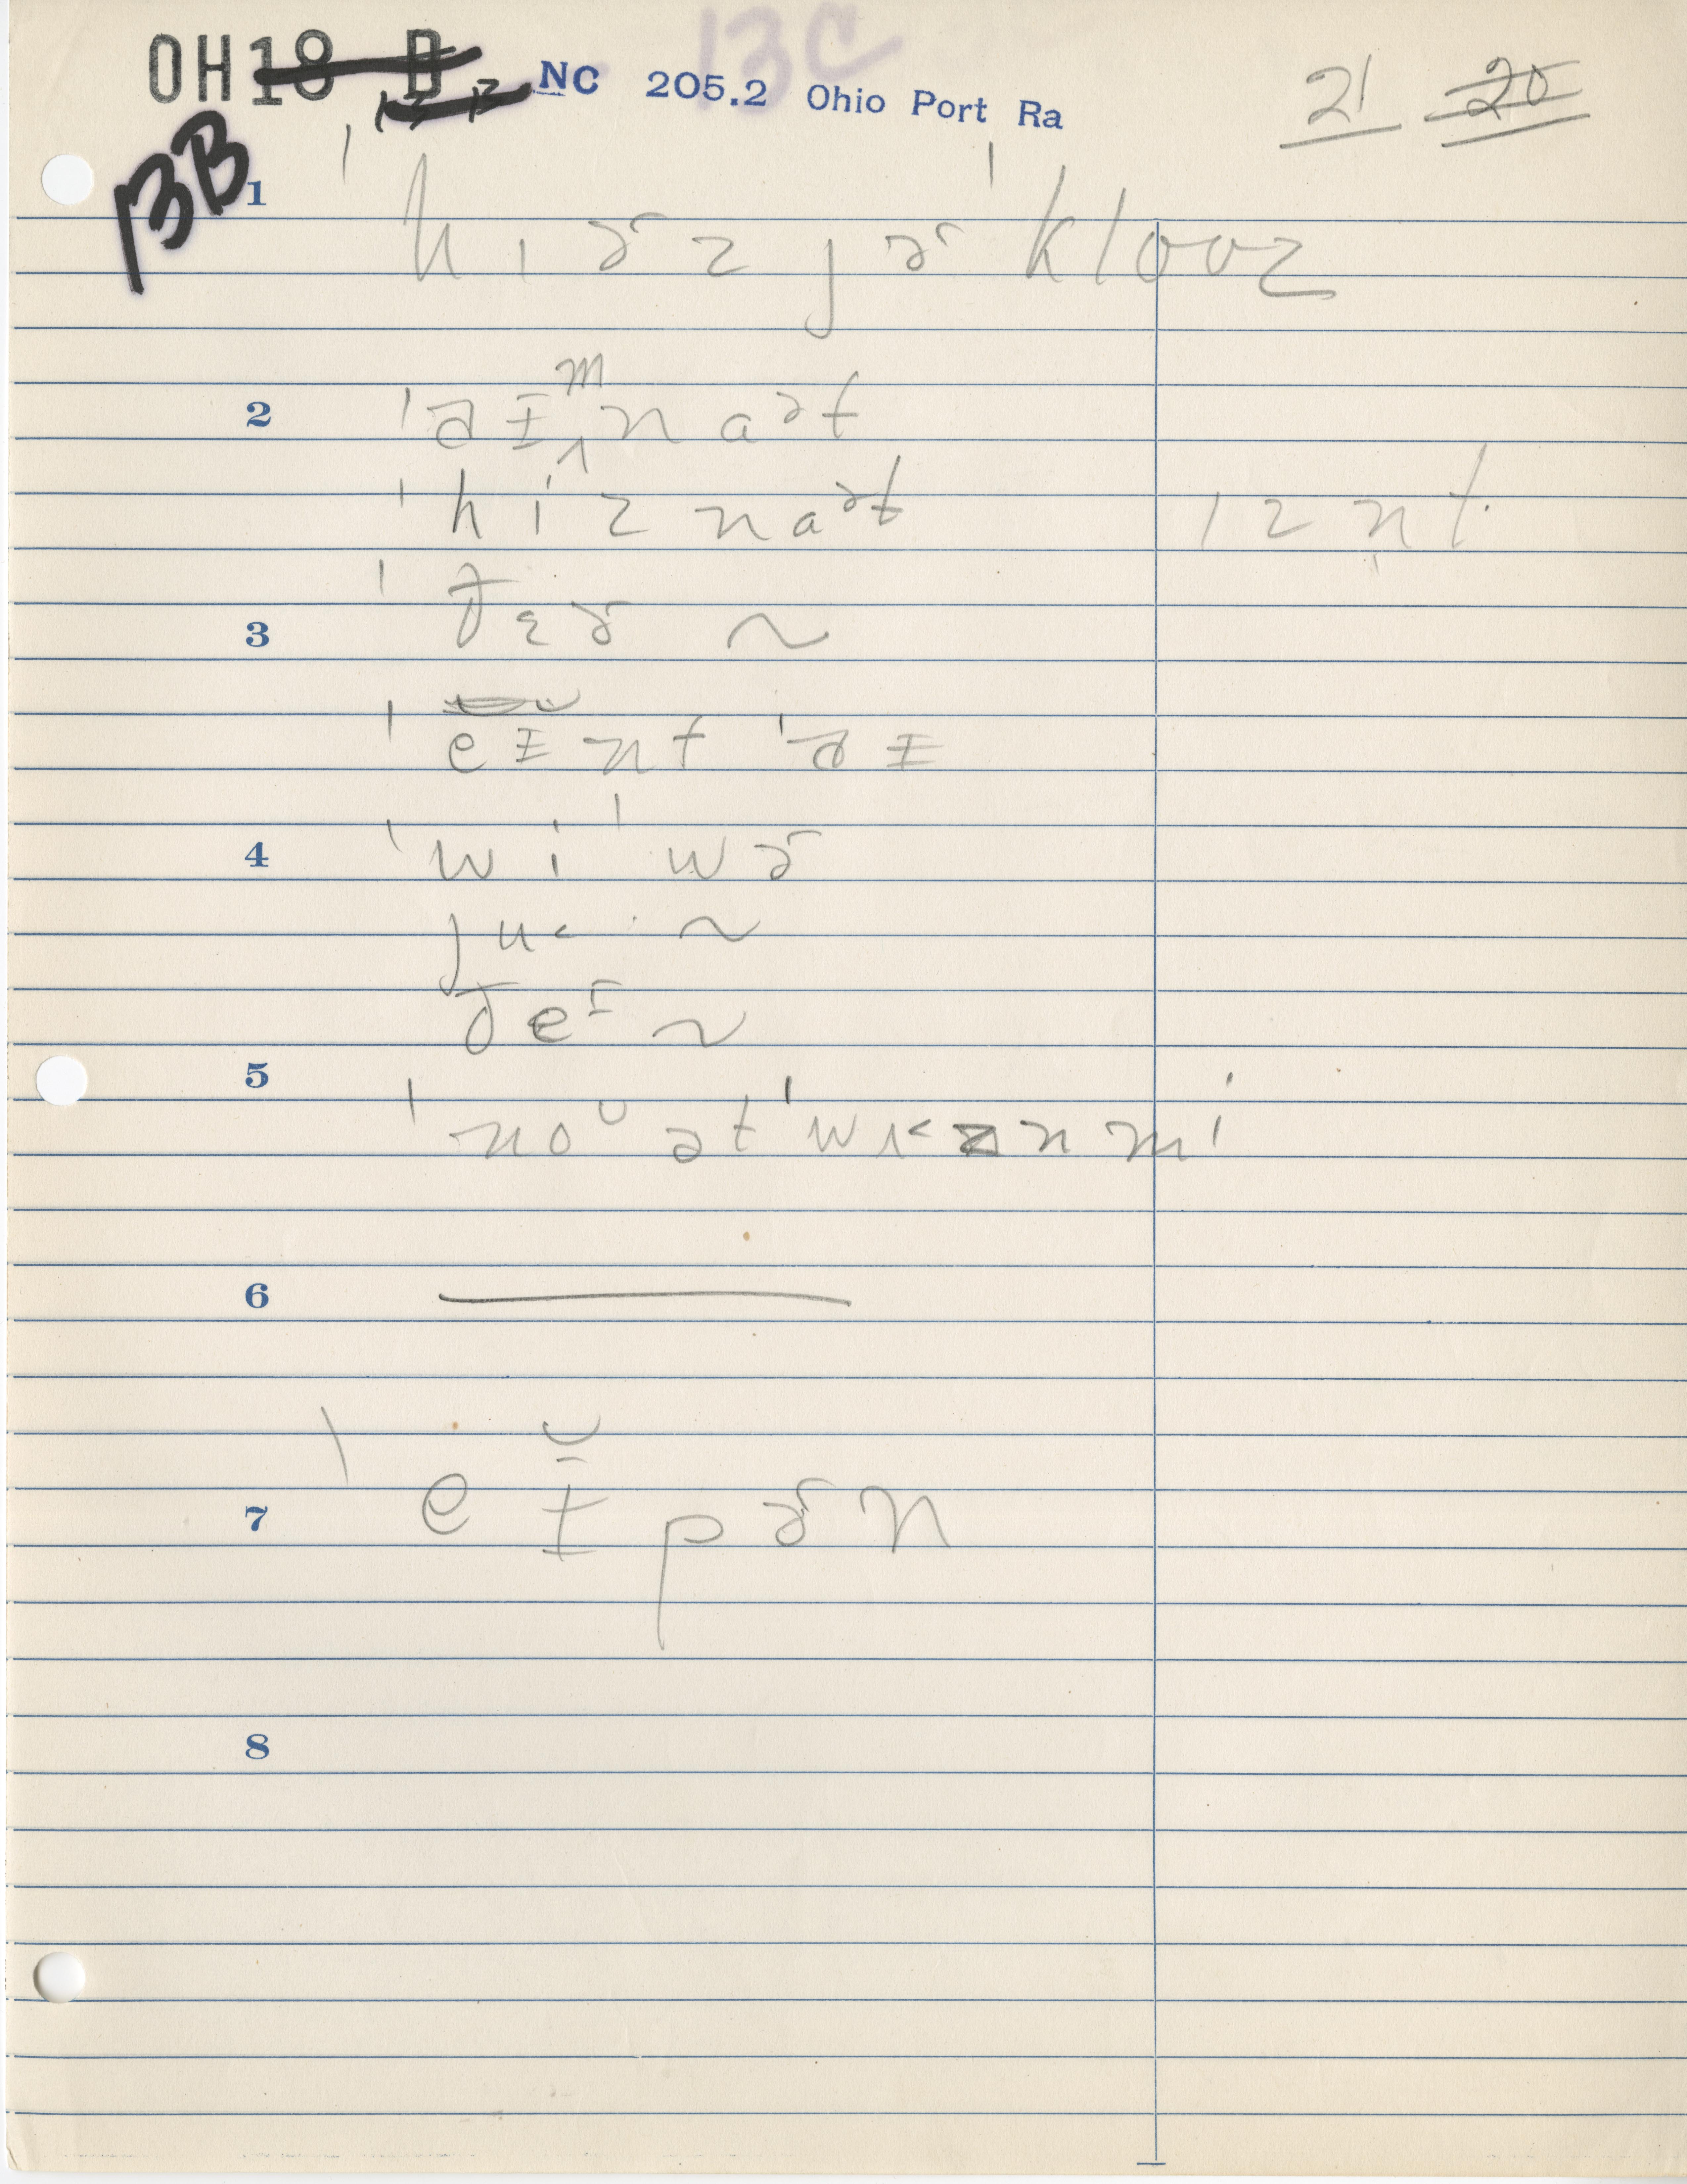 OH18 D 13 B NC 205.2 Ohio Port Ra 13C 21 20
13B
1 ˈhɪɚz jɚ ˈkloʊz
2 ˈaɪmnaᵊt
ˈhiznaᵊt ɪzn̩t
3 ˈðɛɚ ~
ˈeɪnt ˈaɪ
4 ˈwi ˈwɚ
ju< ~
ðeᶦ ~
5 ˈnoᶷ ət ˈwʌ<znmi
6
7 ˈeɪ̆pɚn
8